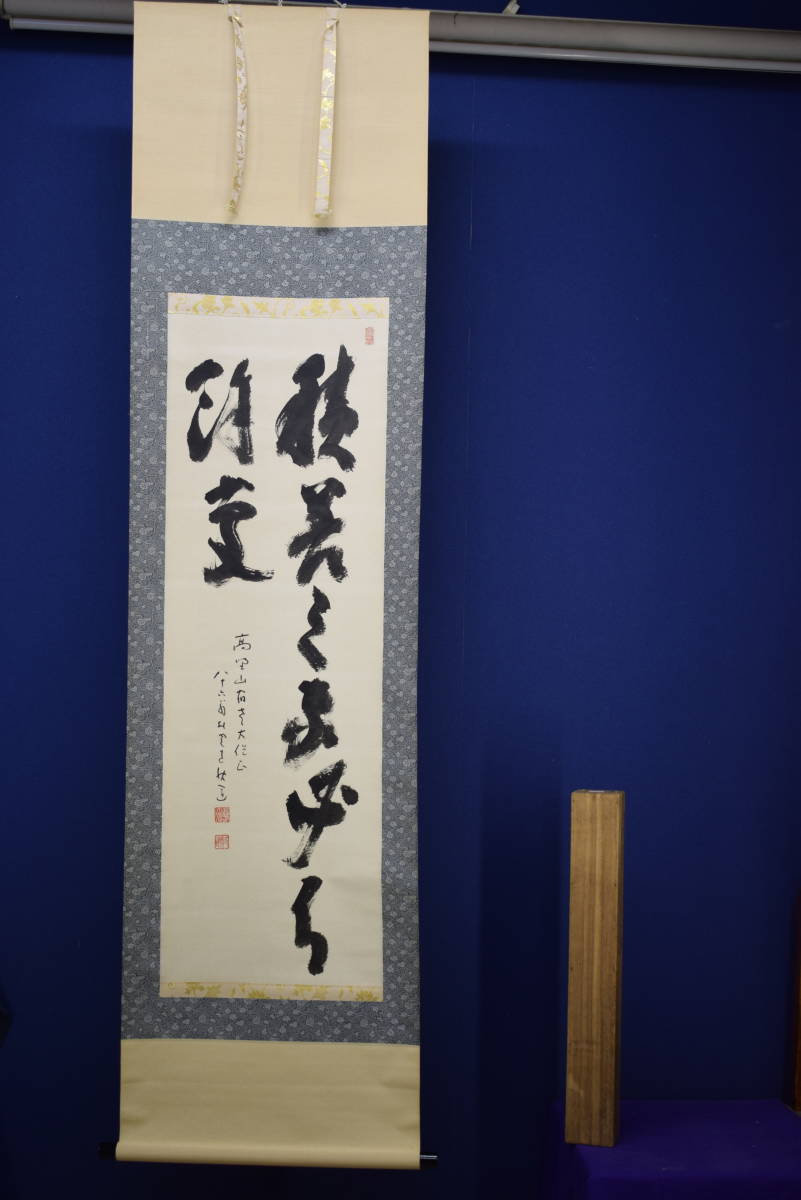 積善之家必有
餘慶
高野山前官大僧正
八十六